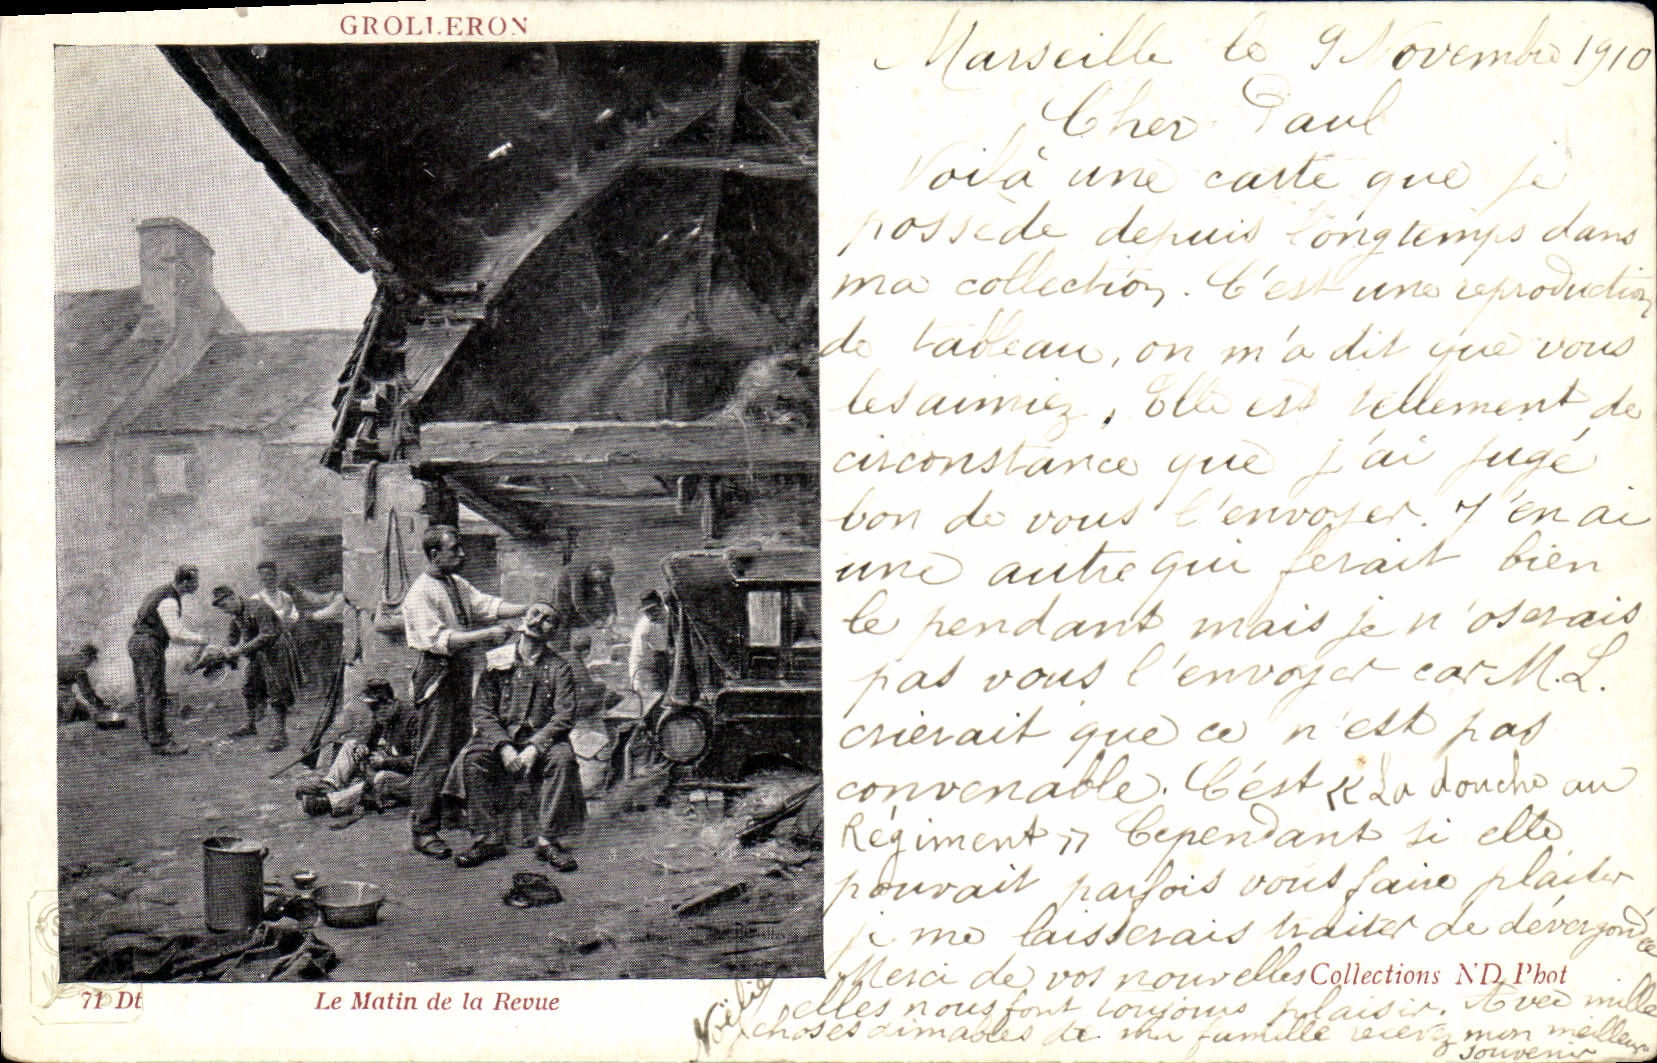 GROLLERON
Marseille le 9 Novembre 1910
Cher Paul
Voilà une carte que je
possède depuis longtemps dans
ma collection. C'est une reproduction
de tableau, on m'a dit que vous
les aimiez, Elle est tellement de
circonstance que j'ai jugé
bon de vous l'envoyer. J'en ai
une autre qui ferait bien
le pendant mais je n'oserais
pas vous l'envoyer car M. L.
crierait que ce n'est pas
convenable. C'est « La douche au
Régiment » Cependant si elle
pouvait parfois vous faire plaisir
je me laisserais traiter de dévergondée
Merci de vos nouvelles
elles nous font toujours plaisir. Avec mille
choses aimables de ma famille recevez mon meilleur
souvenir
Noëlie
Collections ND Phot
71 Dt
Le Matin de la Revue